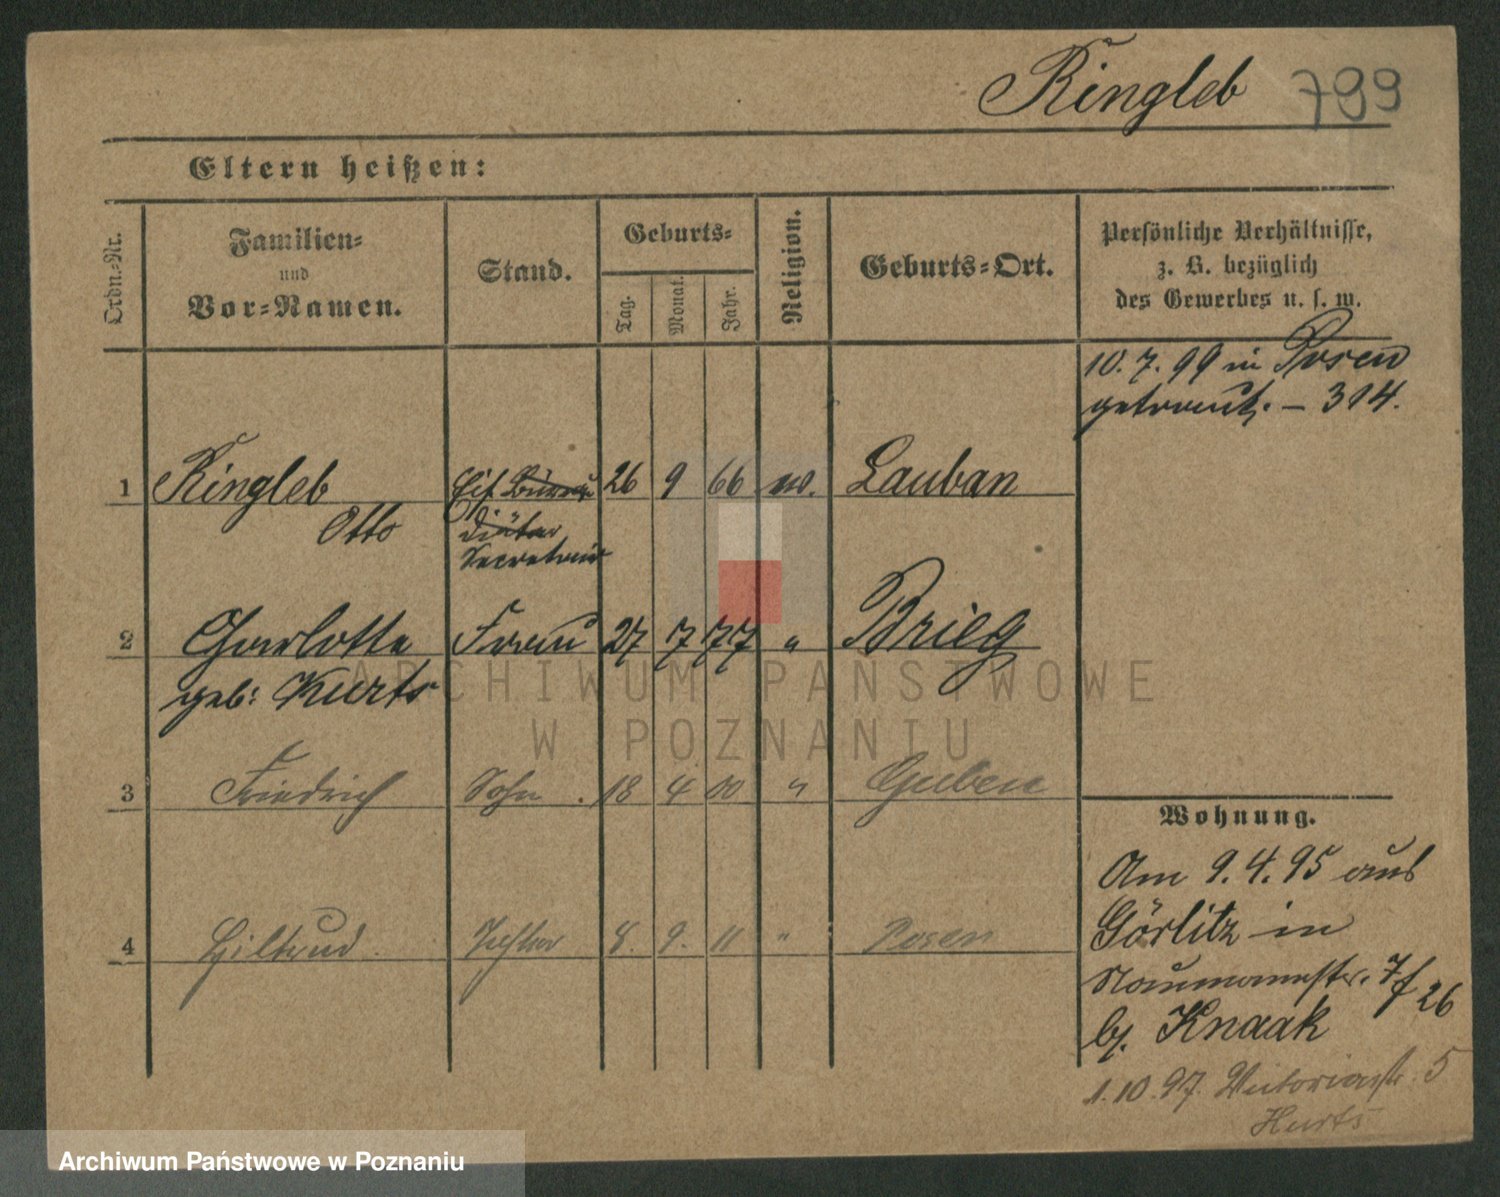 Ringleb 799
Eltern heißen:
Ordn.-Nr.
Familien-
und
Vor-Namen.
Stand.
Geburts-
Tag.
Monat.
Jahr.
Religion.
Geburts-Ort.
Persönliche Verhältnisse,
z. B. bezüglich
des Gewerbes u. s. w.
10. 7. 99 in Posen
getraut. – 314.
1 Ringleb Eis. Bureau 26 9 66 ev. Lauban
Otto Diätar
Secretair
2 Charlotte Frau 27 7 77 " Brieg
geb: Kurts
3 Friedrich Sohn. 18 4 00 " Guben
4 Hiltrud Tochter 8. 9. 11 " Posen
Wohnung.
Am 9. 4. 95 aus
Görlitz in
Naumannstr. 7f 26
b. Knaak
1. 10. 97. Victoriastr. 5
Kurts
ARCHIWUM PAŃSTWOWE
W POZNANIU
Archiwum Państwowe w Poznaniu